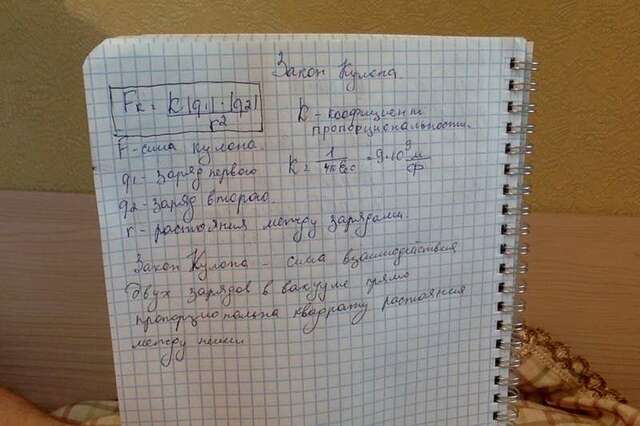 Закон Кулона.
Fк = k|q1|·|q2|
r²
k - коофициент
пропорциональности.
F - сила кулона
q1 - заряд первого
k = 1/4πεε0 = 9·10⁹ м/Ф
q2 - заряд второго.
r - растояния между зарядами.
Закон Кулона - сила взаимодействия
двух зарядов в вакууме прямо
пропорциональна квадрату растояния
между ними